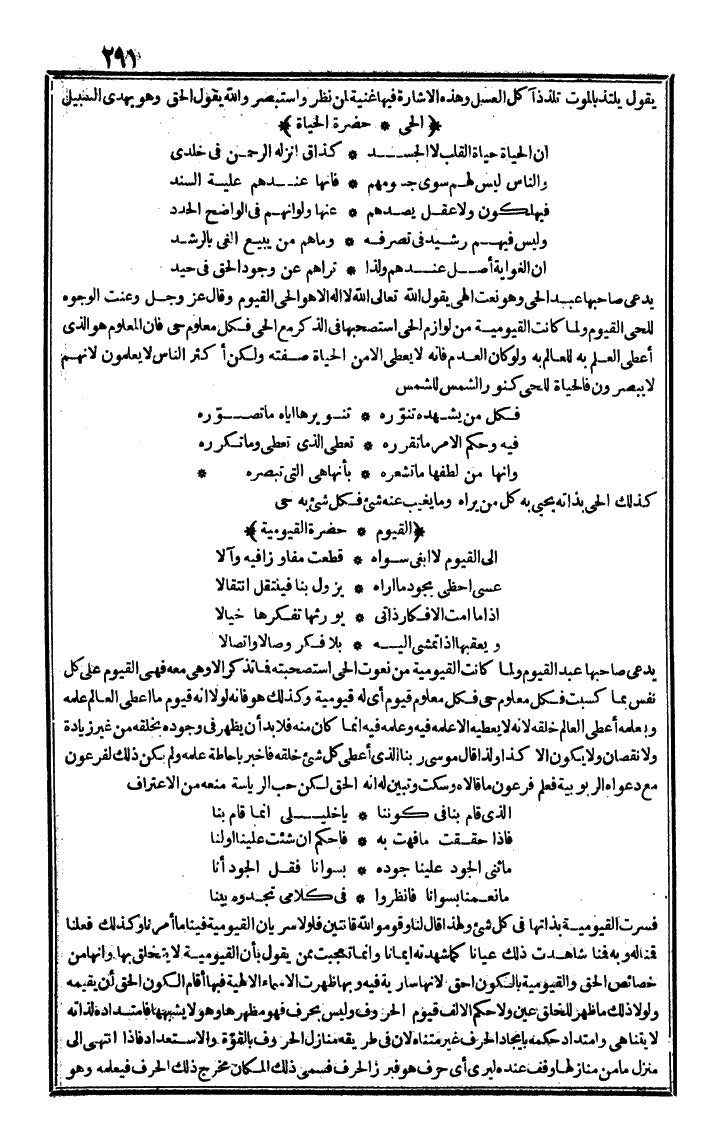 ٢٩١
يقول يلتذ بالموت تلذذ آكل العسل وهذه الاشارة فيها غنية لمن نظر واستبصر والله يقول الحق وهو يهدى السبيل
﴿ الحى * حضرة الحياة ﴾
ان الحياة حياة القلب لا الجسد * كذاق انزله الرحمن فى خلدى
والناس ليس لهم سوى جسومهم * فانها عندهم علية السند
فيهلكون ولا عقل يصدهم * عنها ولو انهم فى الواضح الجدد
وليس فيهم رشيد فى تصرفه * وما هم من يبيع الغى بالرشد
ان الغواية أصل عندهم ولذا * تراهم عن وجود الحق فى حيد
يدعى صاحبها عبد الحى وهو نعت الهى يقول الله تعالى الله لا اله الا هو الحى القيوم وقال عز وجل وعنت الوجوه
للحى القيوم ولما كانت القيومية من لوازم الحى استصحبها فى الذكر مع الحى فكل معلوم حى فان المعلوم هو الذى
أعطى العلم به للعالم به ولو كان العدم فانه لا يعطى الا من الحياة صفته ولكن أكثر الناس لا يعلمون لانهم
لا يبصرون فالحياة للحى كنور الشمس للشمس
فكل من يشهده تنوّره * تنويرها اياه ما تصوّره
فيه وحكم الامر ما تقرره * تعطى الذى تعطى وما تكرره
وانها من لطفها ما تشعره * بأنها هى التى تبصره *
كذلك الحى بذاته يحيى به كل من يراه وما يغيب عنه شئ فكل شئ به حى
﴿ القيوم * حضرة القيومية ﴾
الى القيوم لا ابغى سواه * قطعت مفاوزا فيه وآلا
عسى احظى بجود ما اراه * يزول بنا فينتقل انتقالا
اذا ما امت الافكار ذاتى * يورثها تفكرها خيالا
ويعقبها اذا تمشى اليه * بلا فكر وصالا واتصالا
يدعى صاحبها عبد القيوم ولما كانت القيومية من نعوت الحى استصحبته فما تذكر الا وهى معه فهى القيوم على كل
نفس بما كسبت فكل معلوم حى فكل معلوم قيوم أى له قيومية وكذلك هو فانه لولا انه قيوم ما اعطى العالم علمه
وبعلمه أعطى العالم خلقه لانه لا يعطيه الا علمه فيه وعلمه فيه انما كان منه فلا بد أن يظهر فى وجوده بخلقه من غير زيادة
ولا نقصان ولا يكون الا كذا ولذا قال موسى ربنا الذى أعطى كل شئ خلقه فاخبر باحاطة علمه ولم يكن ذلك لفرعون
مع دعواه الربوبية فعلم فرعون ما قالاه وسكت وتبين له انه الحق لكن حب الرياسة منعه من الاعتراف
الذى قام بنا فى كوننا * يا خليلى انما قام بنا
فاذا حققت ما فهت به * فاحكم ان شئت علينا اولنا
ما ثنى الجود علينا جوده * بسوانا فقل الجود أنا
ما نعمنا بسوانا فانظروا * فى كلامى تجدوه بينا
فسرت القيومية بذاتها فى كل شئ ولهذا قال لنا وقوموا لله قانتين فلولا سريان القيومية فينا ما أمرنا وكذلك فعلنا
قمنا له وبه فمنا شاهدت ذلك عيانا كما شهدته ايمانا وانما تعجبت ممن يقول بأن القيومية لا يتخلق بها وانها من
خصائص الحق والقيومية بالكون احق لانها سارية فيه وبها ظهرت الاسماء الالهية فبها أقام الكون الحق أن يقيمه
ولولا ذلك ما ظهر للخلق عين ولا حكم الالف قيوم الحروف وليس بحرف فهو مظهرها وهو لا يشبهها فامتداده لذاته
لا يتناهى وامتداد حكمه بايجاد الحرف غير متناه لان فى طريقه منازل الحروف بالقوّة والاستعداد فاذا انتهى الى
منزل ما من منازلها وقف عنده ليرى أى حرف هو فبرز الحرف فسمى ذلك المكان مخرج ذلك الحرف فيعلمه وهو